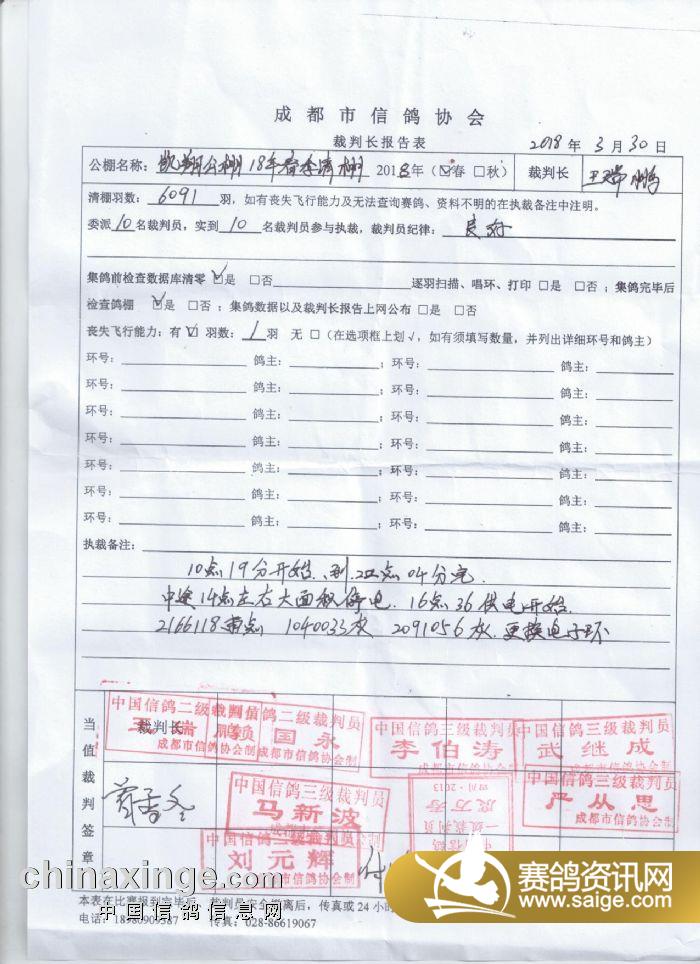 成都市信鸽协会
裁判长报告表 2018年3月30日
公棚名称：凯翔公棚18年春季清棚 2018年（☑春 □秋） 裁判长 王瑞鹏
清棚羽数：6091羽，如有丧失飞行能力及无法查询赛鸽、资料不明的在执裁备注中注明。
委派10名裁判员，实到10名裁判员参与执裁，裁判员纪律：良好
集鸽前检查数据库清零 ☑是 □否 逐羽扫描、唱环、打印 □是 □否；集鸽完毕后
检查鸽棚 ☑是 □否；集鸽数据以及裁判长报告上网公布 □是 □否
丧失飞行能力：有 ☑ 羽数：1羽 无 □（在选项框上划√，如有须填写数量，并列出详细环号和鸽主）
环号： 鸽主： ；环号： 鸽主：
环号： 鸽主： ；环号： 鸽主：
环号： 鸽主： ；环号： 鸽主：
环号： 鸽主： ；环号： 鸽主：
环号： 鸽主： ；环号： 鸽主：
环号： 鸽主： ；环号： 鸽主：
环号： 鸽主： ；环号： 鸽主：
执裁备注：
10点19分开始、到22点04分完.
中途14点左右大面积停电.16点36供电开始.
2166118 1040033 2091056 更换电子环
当值裁判签章
裁判长
中国信鸽二级裁判员
王瑞鹏
成都市信鸽协会制
中国信鸽二级裁判员
赖国永
成都市信鸽协会制
中国信鸽三级裁判员
李伯涛
成都市信鸽协会制
中国信鸽三级裁判员
武继成
成都市信鸽协会制
中国信鸽三级裁判员
马新波
成都市信鸽协会制
四川·2013
一级裁判员
中国信鸽
中国信鸽三级裁判员
严从思
成都市信鸽协会制
中国信鸽三级裁判员
刘元辉
成都市信鸽协会制
本表在比赛报到完毕后，裁判员安全撤离后，传真或24小时
电话：18980909387 传真：028-86619067
chinaxinge.com
中国信鸽信息网
赛鸽资讯网
www.saige.com